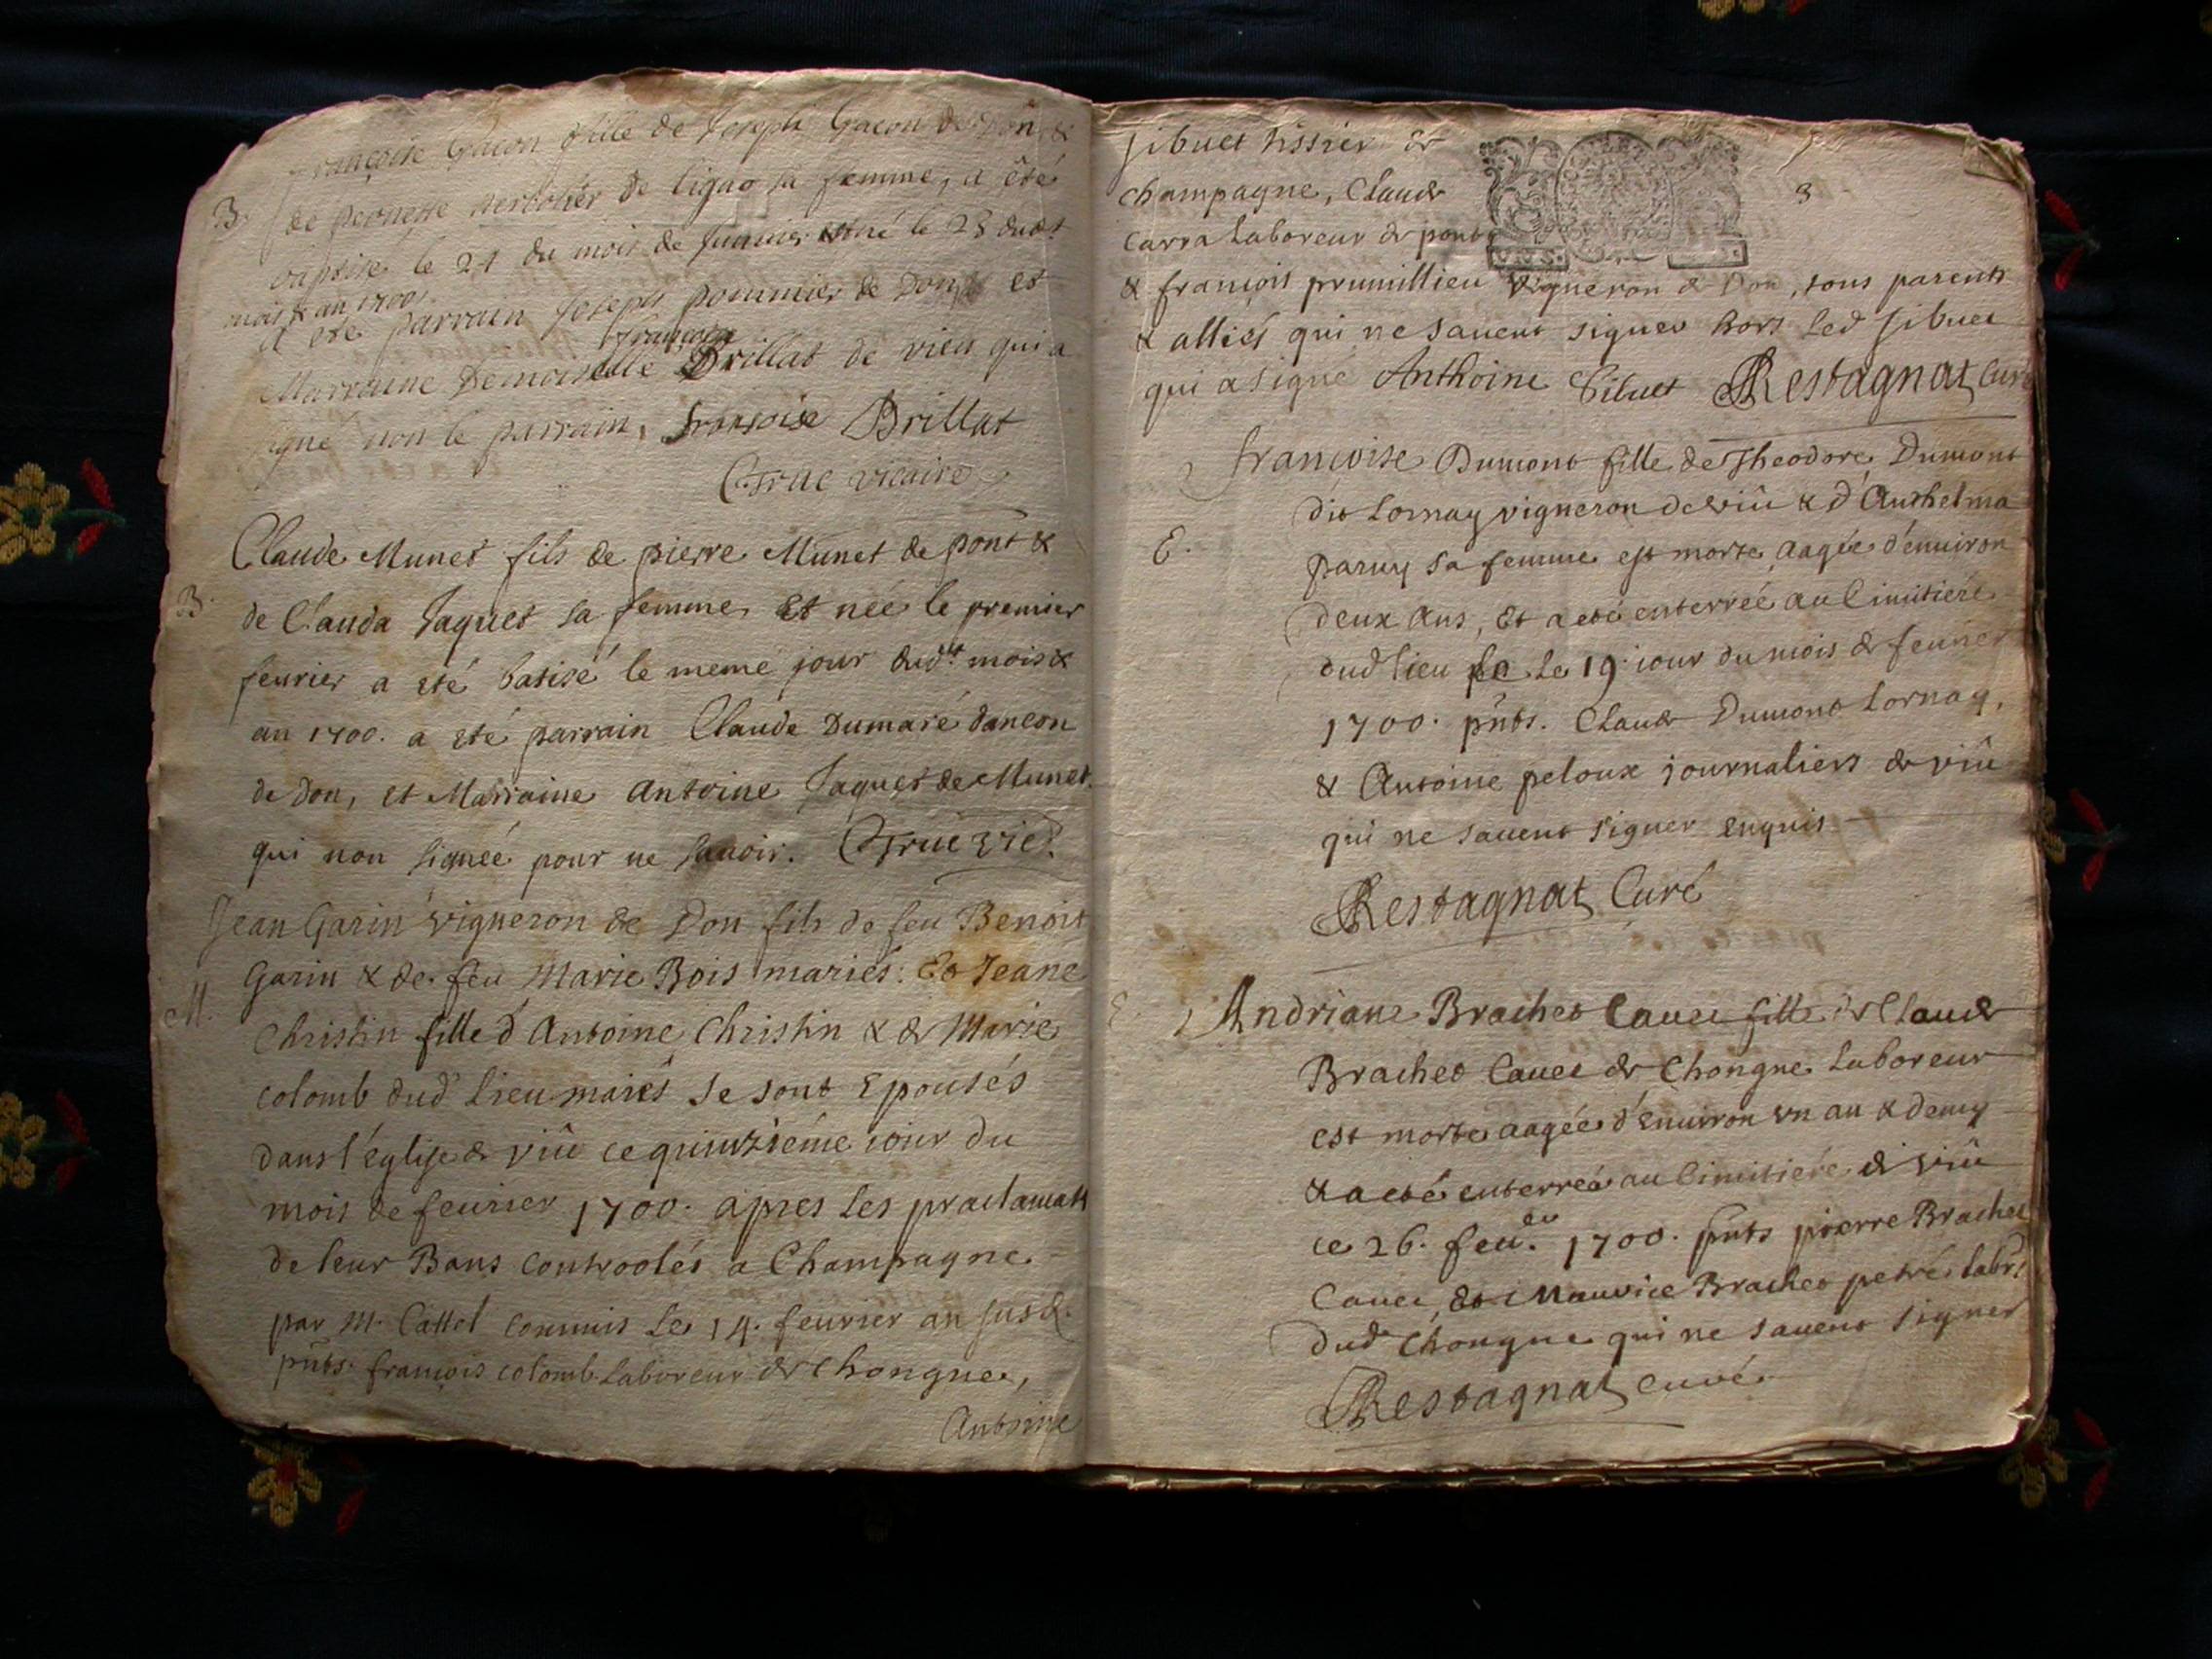 françoise Gacon fille de Joseph Gacon de Don &
B. de peonette de ligno sa femme, a été
baptisé le 24 du mois de Janvier né le 23 dudt
mois & an 1700.
a été parrain Joseph pommier de Don et
françoise
Marraine Demoiselle Brillat de vieu qui a
signé non le parrain, francoise Brillat
C. True vicaire
Claude Munet fils de pierre Munet de pont &
B. de Clauda Jaquet sa femme Et née le premier
feurier a eté batisé le meme jour dudt mois &
an 1700. a eté parrain Claude Dumaré dancon
de Don, et Marraine Antoine Jaquet de Munet.
qui non signeé pour ne sauoir. C True vic.
Jean Garin vigneron de Don fils de feu Benoit
Garin & de feu Marie Bois mariés: Et Jeane
M. Christin fille d'Antoine Christin & de Marie
colomb dud' lieu mariés se sont Epousés
dans l'église de viû ce quinzième iour du
mois de feurier 1700. apres les proclamatt
de leur Bans controolés a Champagne
par M. Cattel commis le 14. feurier an susd.
pnts. francois colomb Laboreur de Chongnes,
Antoine
sibuet tissier de
3
champagne, Claude
Carra Laboreur de pont
& francois prumillieu vigneron de Don, tous parents
& alliés qui ne sauent signer hors led sibuet
qui a signé Anthoine Sibuet Restagnat Curé
francoise Dumont fille de Theodore Dumont
dit Lornay vigneron de viû & d'Anthelma
E. paruy sa femme est morte aagée d'enuiron
deux ans, Et a eté enterreé au Cimitiére
dud' lieu le 19. iour du mois de feurier
1700. pnts. Claude Dumont Lornay,
& Antoine peloux journaliers de viû
qui ne sauent signer enquis
Restagnat Curé
E. Andriane Brachet Cauet fille de Claude
Brachet Cauet de Chongne Laboreur
est morte aagée d'Enuiron vn an & demy
& a eté enterreé au Cimitiere de viû
ce 26. feuer. 1700. pnts pierre Brachet
Cauet, Et Maurice Brachet petré labrs.
dud' Chongne qui ne sauent signer
Restagnat curé